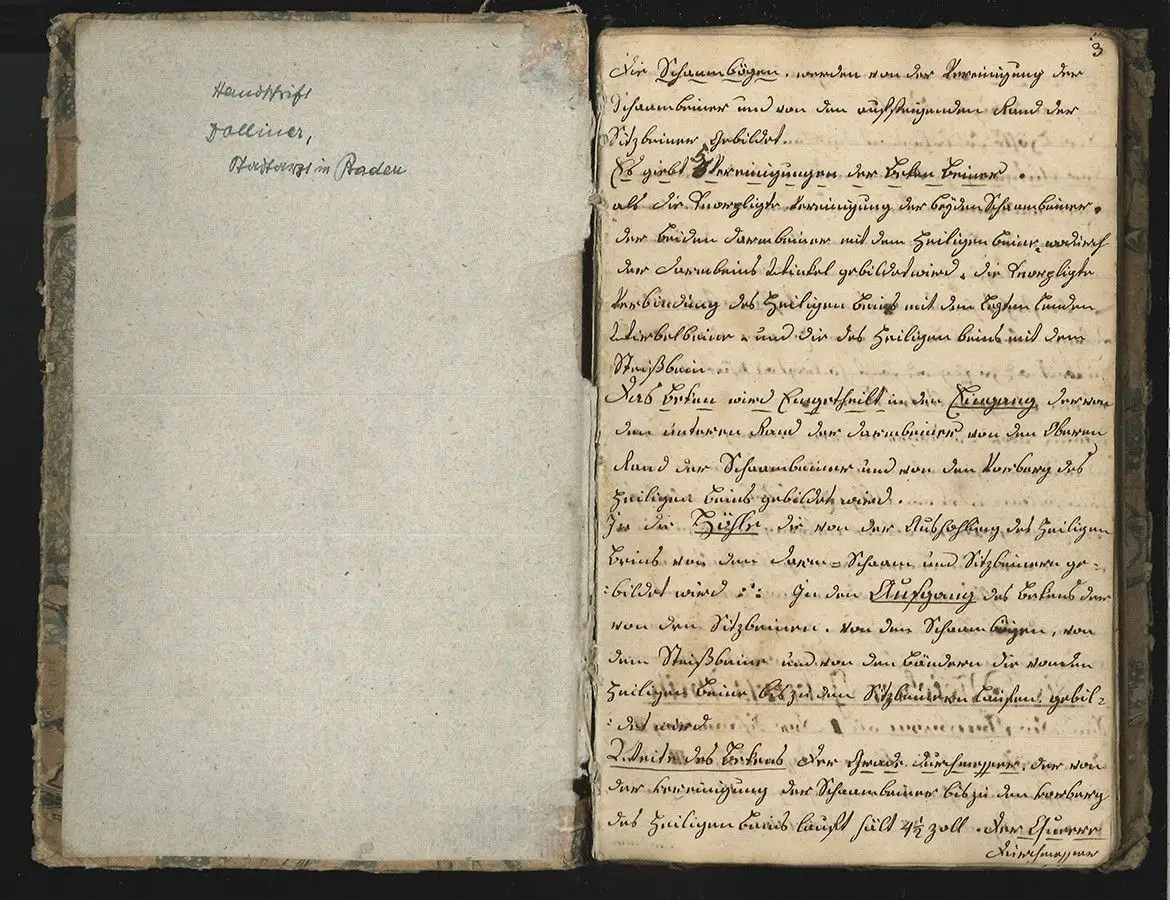 Handschrift
Dolliner,
Stadtarzt in Baden
3
Die Schaambögen werden von der Vereinigung der
Schaambeiner und von den aufsteigenden Rand der
Sitzbeiner gebildet.
Es giebt 5 Vereinigungen der Beken Beiner.
als die knorpligte Vereinigung der beyden Schaambeiner,
der beiden Darmbeiner mit dem Heiligen Beine, wodurch
der Darmbeins Winkel gebildet wird, die knorpligte
Verbindung des Heiligen Beins mit dem lezten Lenden
Wirbelbeine, und die des Heiligen beins mit dem
Steißbein
Das Beken wird Eingetheilt in den Eingang der von
dem unteren Rand der Darmbeiner von den Oberen
Rand der Schaambeiner und von den Vorberg des
Heiligen Beins gebildet wird.
In die Höhle die von der Aushohlung des Heiligen
Beins von den Darm= Schaam und Sitzbeinern ge-
:bildet wird : In den Ausgang des Bekens der
von den Sitzbeinen, von den Schaambögen, von
dem Steißbeine und von den Bändern die von den
Heiligen Beine bis zu den Sitzbeinern laufen, gebil=
:det wird
Weite des Bekens Der Grade durchmesser, der von
der Vereinigung der Schaambeiner bis zu den Vorberg
des Heiligen Beins lauft hält 4½ Zoll. Der Querre
Durchmesser